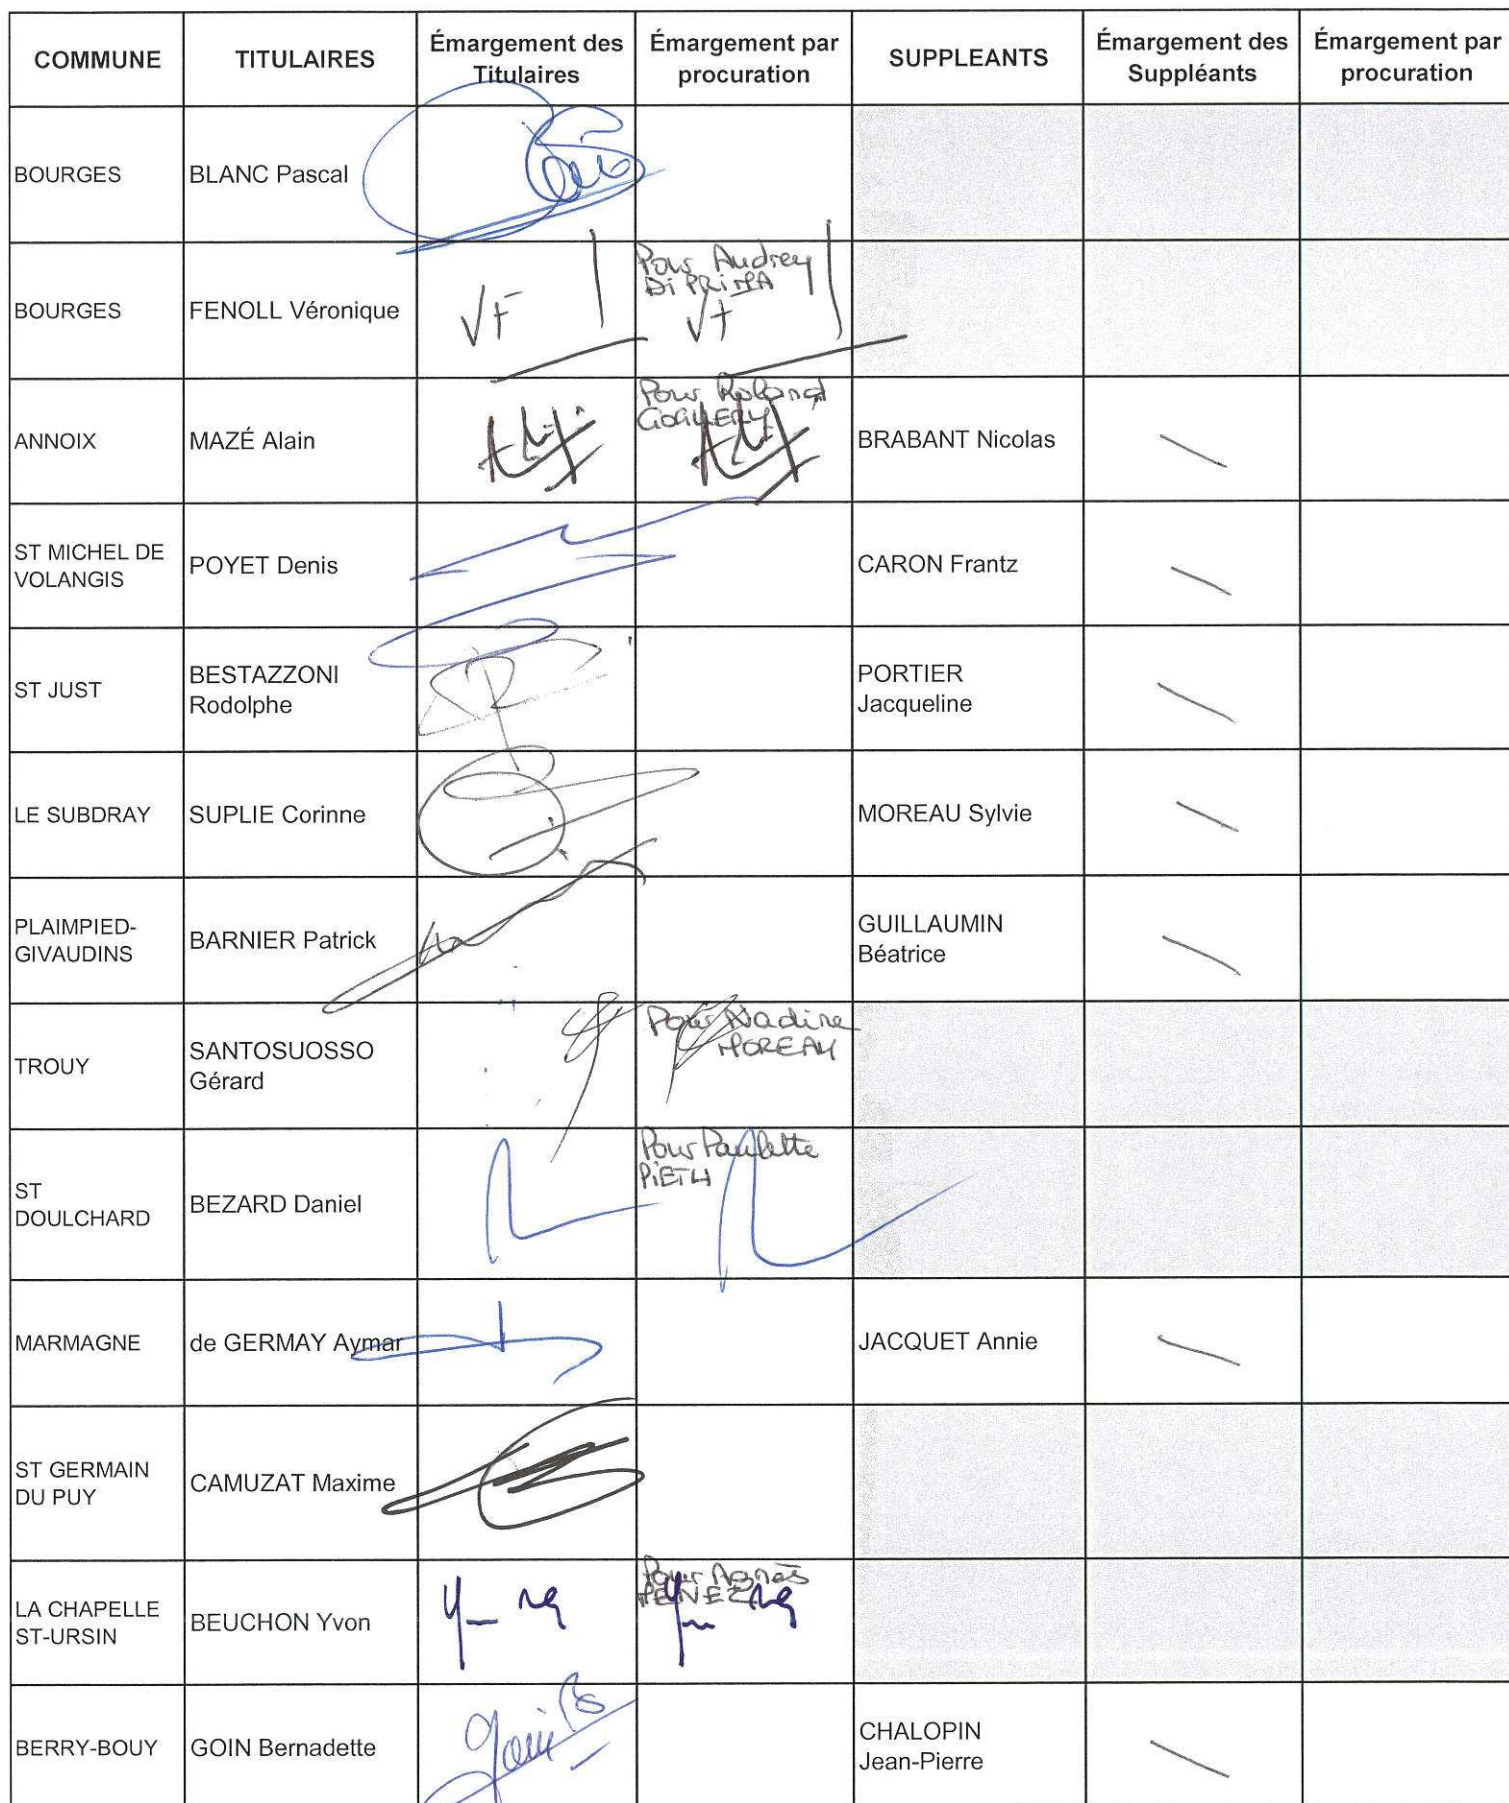 COMMUNE
TITULAIRES
Émargement des
Titulaires
Émargement par
procuration
SUPPLEANTS
Émargement des
Suppléants
Émargement par
procuration
BOURGES
BLANC Pascal
BOURGES
FENOLL Véronique
VF
Pour Audrey
Di PRiMA
VF
ANNOIX
MAZÉ Alain
Pour Roland
BRABANT Nicolas
ST MICHEL DE
VOLANGIS
POYET Denis
CARON Frantz
ST JUST
BESTAZZONI
Rodolphe
PORTIER
Jacqueline
LE SUBDRAY
SUPLIE Corinne
MOREAU Sylvie
PLAIMPIED-
GIVAUDINS
BARNIER Patrick
GUILLAUMIN
Béatrice
TROUY
SANTOSUOSSO
Gérard
Pour Nadine
MOREAU
ST
DOULCHARD
BEZARD Daniel
Pour Paulette
MARMAGNE
de GERMAY Aymar
JACQUET Annie
ST GERMAIN
DU PUY
CAMUZAT Maxime
LA CHAPELLE
ST-URSIN
BEUCHON Yvon
Pour Agnès
BERRY-BOUY
GOIN Bernadette
CHALOPIN
Jean-Pierre